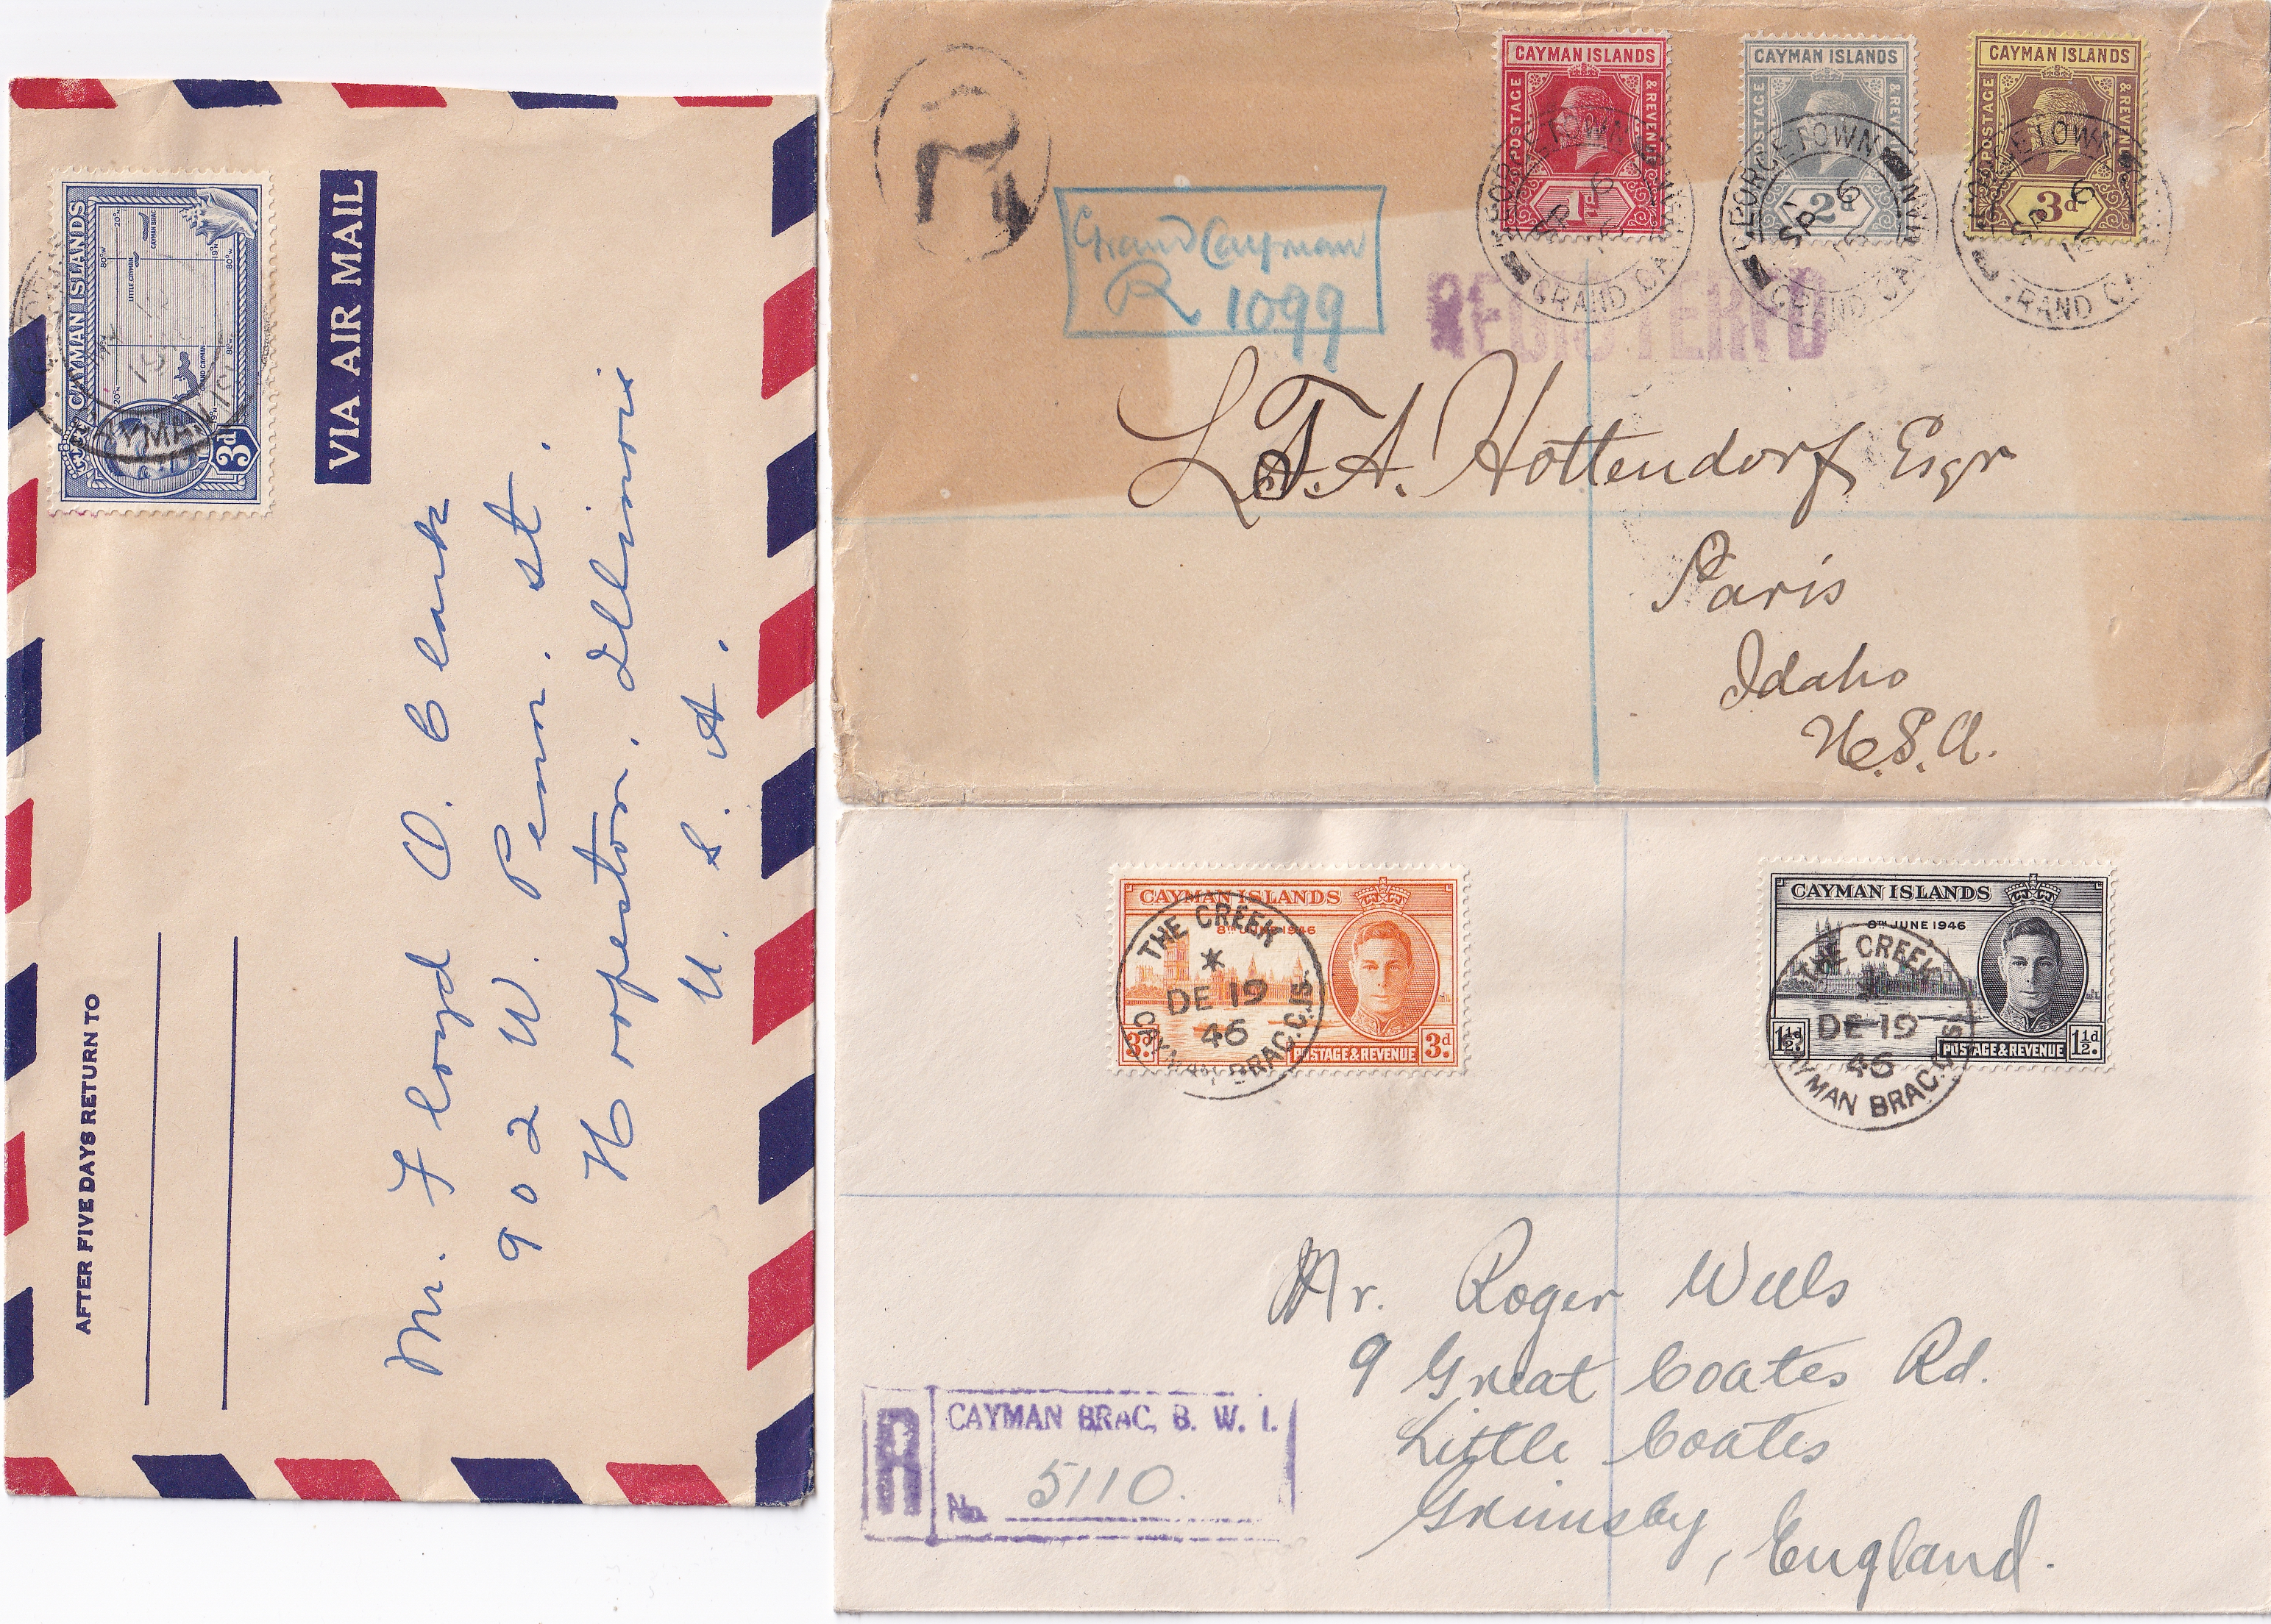 CAYMAN ISLANDS
3d
VIA AIR MAIL
AFTER FIVE DAYS RETURN TO
Mr. Floyd O. Clark
902 W. Penn. St.
Hoopeston, Illinois
U. S. A.
CAYMAN ISLANDS
POSTAGE & REVENUE
1d
CAYMAN ISLANDS
POSTAGE & REVENUE
2d
CAYMAN ISLANDS
POSTAGE & REVENUE
3d
GEORGETOWN
GRAND CAYMAN
R
Grand Cayman
R 1099
REGISTERED
L. A. Hottendorf, Esqr
Paris
Idaho
U.S.A.
CAYMAN ISLANDS
8TH JUNE 1946
3d. POSTAGE & REVENUE 3d.
THE CREEK
DE 19
46
CAYMAN BRAC. C. IS.
CAYMAN ISLANDS
8TH JUNE 1946
1½d. POSTAGE & REVENUE 1½d.
THE CREEK
DE 19
46
CAYMAN BRAC. C. IS.
Mr. Roger Wells
9 Great Coates Rd.
Little Coates
Grimsby, England.
R CAYMAN BRAC, B. W. I.
No. 5110.